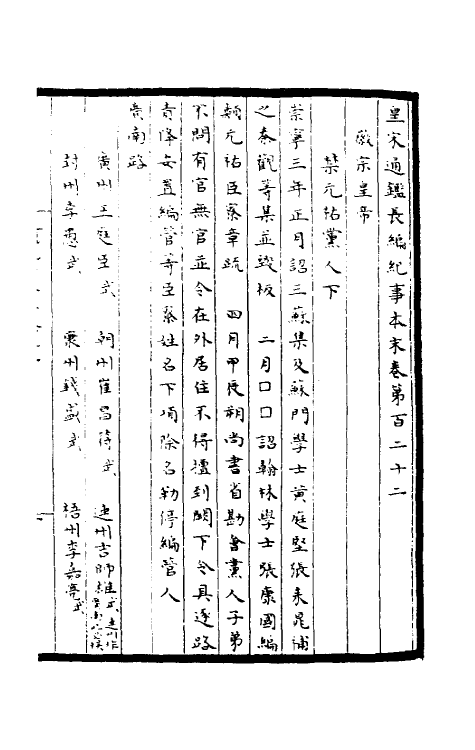 皇宋通鑑長編紀事本末卷第百二十二
徽宗皇帝
禁元祐黨人下
崇寧三年正月詔三蘇集及蘇門學士黃庭堅張耒晁補
之秦觀等集並毀板　二月囗囗詔翰林學士張康國編
類元祐臣寮章疏　四月甲辰朔尚書省勘會黨人子弟
不問有官無官並令在外居住不得擅到闕下令具逐路
責降安置編管等臣寮姓名下項除名勒停編管人
廣南路
廣州王庭臣式　朝州崔昌符式　連州吉師雄式
封州李愚式　康州錢盛式　梧州李嘉亮式